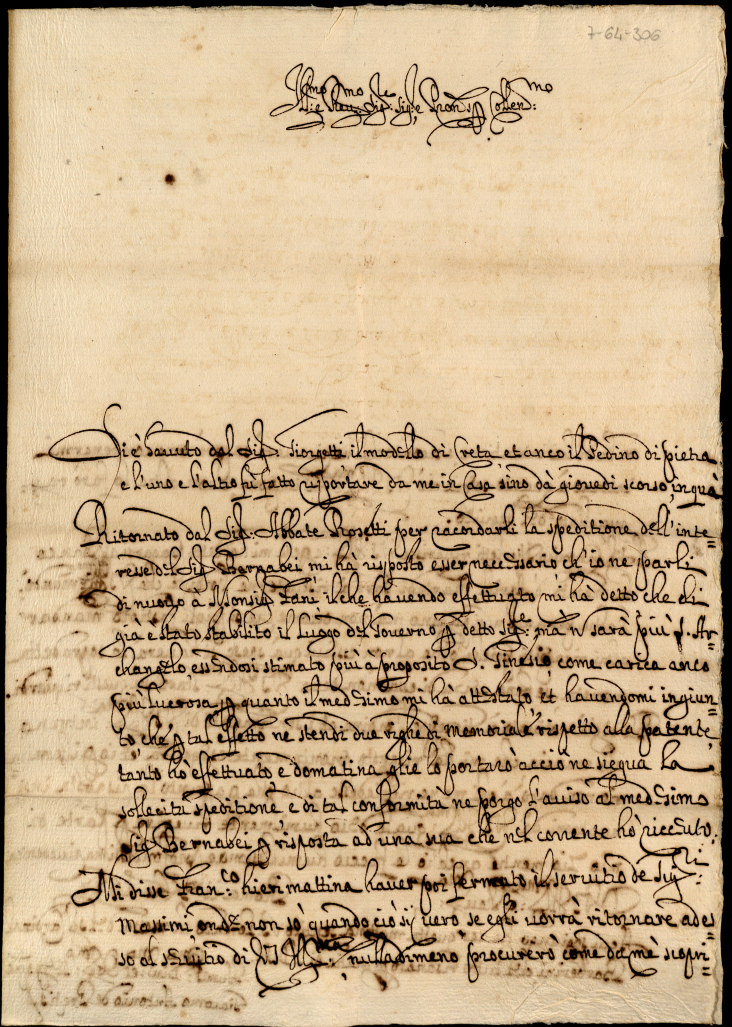 7-64-306
Ill:mo e Rev:mo Sig:re Sig:re e Pron: Colen:mo
Si è havuto dal Sig.r Giorgetti il modello di Creta et anco il Sedino di pietra
e l'uno e l'altro fù fatto risportare da me in Casa sino dà giovedì scorso, in quà
Ritornato dal Sig.r Abbate Rosetti per racordarli la speditione dell'inte=
resse del Sig.r Bernabei mi hà risposto esser neccessario ch'io ne parli
di nuovo à Monsig.r Fani il che havendo effettuato mi hà detto che di
già è stato stabilito il luogo del Governo p detto Sig:re mà n̄ sarà più S. Ar=
changelo, essendosi stimato più à proposito S. Ginesio come carica anco
più lucrosa p quanto il medesimo mi hà attestato et havendomi ingiun=
to che p tal effetto ne stendi due righe di memoria e rispetto alla patente,
tanto hò effettuato e domatina glie lo portarò acciò ne siegua la
sollecita speditione e di tal conformità ne porgo l'auiso al medesimo
Sig.r Bernabei p risposta ad una sua che nel corrente hò riceuuto.
Mi disse Fran:co hieri mattina haver poi fermato il seruitio de Sig:ri
Massimi onde non sò quando ciò sij vero se egli vorrà ritornare ades=
so al seruitio di V.S. Ill:ma nulladimeno procurerò come da mè scopri=